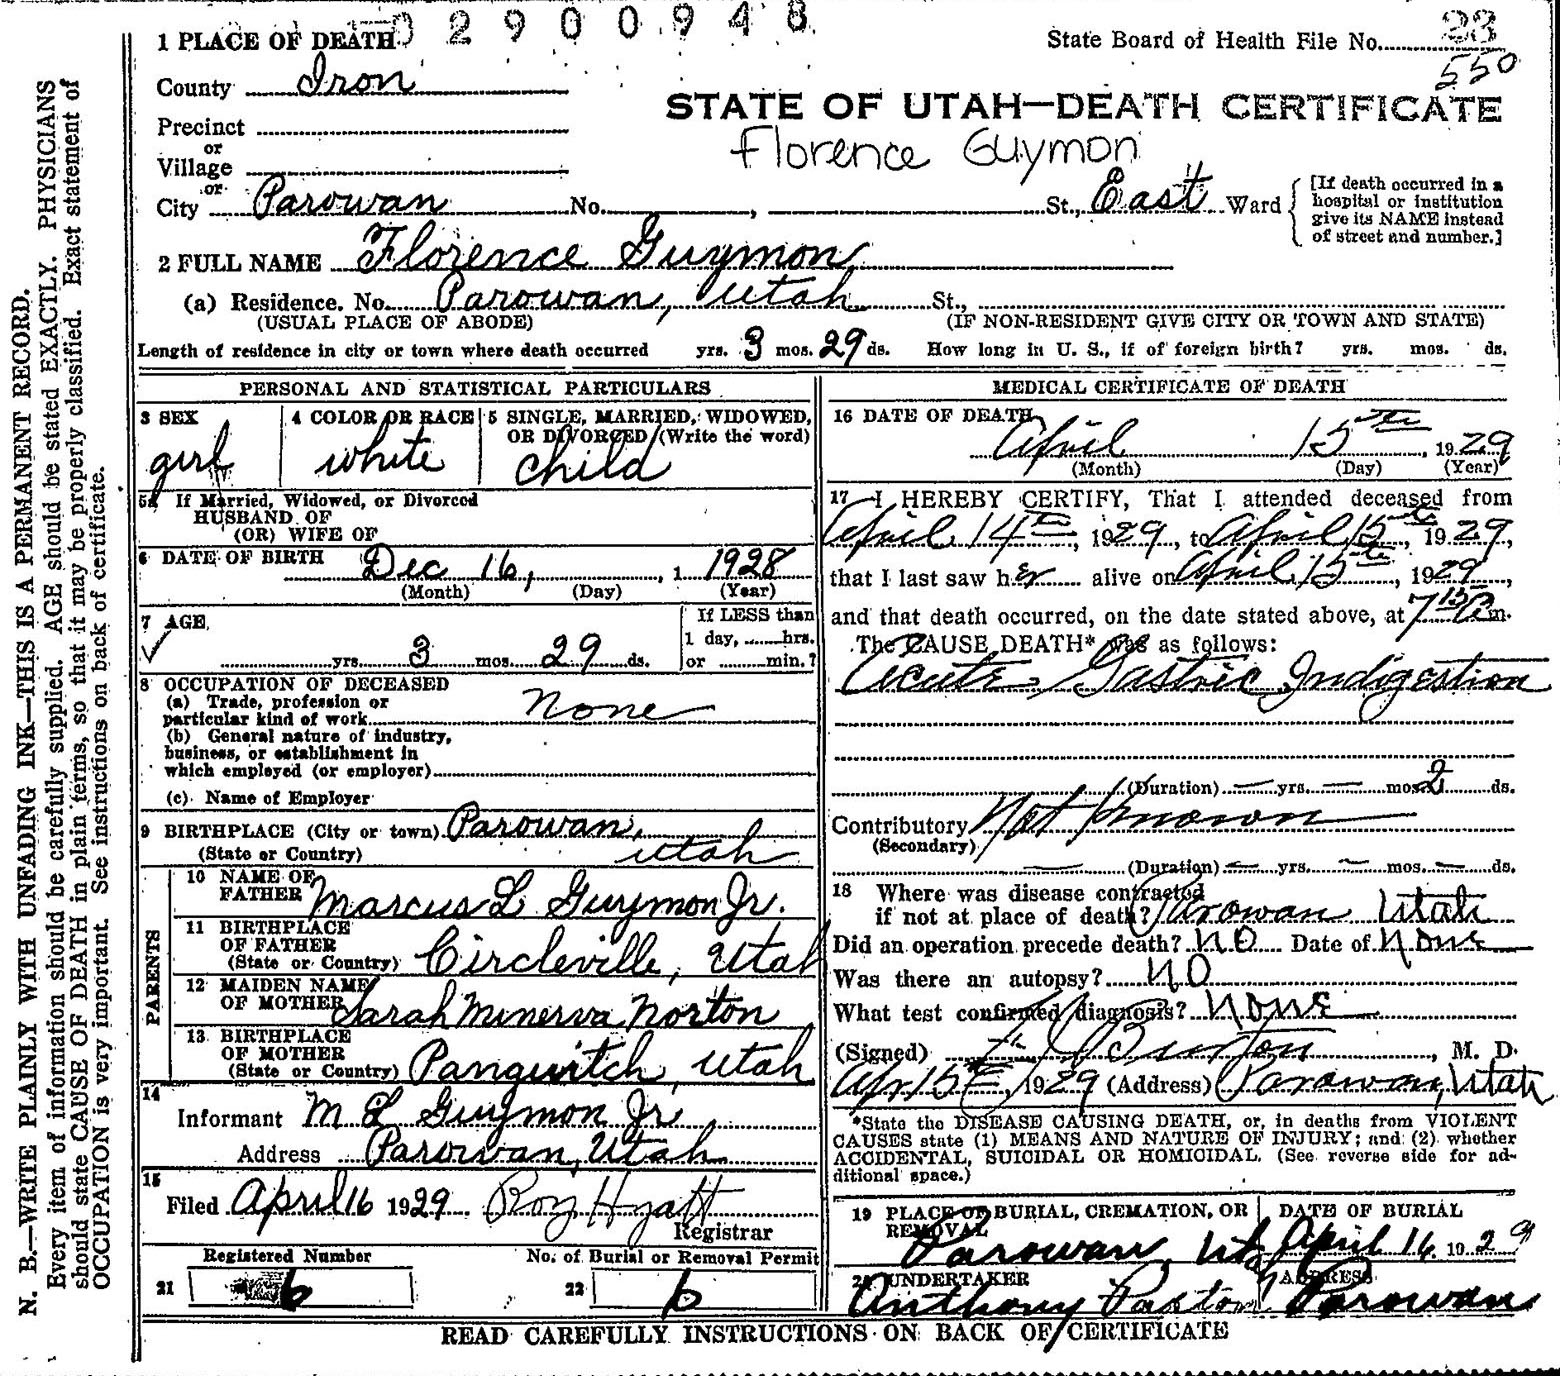 02900948
1 PLACE OF DEATH
State Board of Health File No. 23
550
County Iron
STATE OF UTAH—DEATH CERTIFICATE
Florence Guymon
Precinct
or
Village
or
City Parowan No. , St., East Ward
[If death occurred in a
hospital or institution
give its NAME instead
of street and number.]
2 FULL NAME Florence Guymon
(a) Residence. No. Parowan, Utah St.,
(USUAL PLACE OF ABODE) (IF NON-RESIDENT GIVE CITY OR TOWN AND STATE)
Length of residence in city or town where death occurred yrs. 3 mos. 29 ds. How long in U. S., if of foreign birth? yrs. mos. ds.
PERSONAL AND STATISTICAL PARTICULARS
3 SEX
girl
4 COLOR OR RACE
white
5 SINGLE, MARRIED, WIDOWED,
OR DIVORCED (Write the word)
child
5a If Married, Widowed, or Divorced
HUSBAND OF
(OR) WIFE OF
6 DATE OF BIRTH Dec 16, , 1 1928
(Month) (Day) (Year)
7 AGE
yrs. 3 mos. 29 ds.
If LESS than
1 day, hrs.
or min.?
8 OCCUPATION OF DECEASED
(a) Trade, profession or
particular kind of work None
(b) General nature of industry,
business, or establishment in
which employed (or employer)
(c) Name of Employer
9 BIRTHPLACE (City or town) Parowan,
(State or Country) Utah
PARENTS
10 NAME OF
FATHER Marcus L Guymon Jr.
11 BIRTHPLACE
OF FATHER
(State or Country) Circleville, Utah
12 MAIDEN NAME
OF MOTHER Sarah Minerva Norton
13 BIRTHPLACE
OF MOTHER
(State or Country) Panguitch, Utah
14
Informant M L Guymon Jr
Address Parowan, Utah
15
Filed April 16 1929 Roy Hyatt
Registrar
Registered Number No. of Burial or Removal Permit
21 6 22 6
MEDICAL CERTIFICATE OF DEATH
16 DATE OF DEATH
April 15th, 1929
(Month) (Day) (Year)
17 I HEREBY CERTIFY, That I attended deceased from
April 14th, 1929, to April 15th, 1929,
that I last saw her alive on April 15th, 1929,
and that death occurred, on the date stated above, at 7 15 m.
The CAUSE DEATH* was as follows:
Acute Gastric Indigestion
(Duration) — yrs. — mos. 2 ds.
Contributory Not Known
(Secondary)
— (Duration) — yrs. — mos. — ds.
18 Where was disease contracted
if not at place of death? Parowan Utah
Did an operation precede death? NO Date of None
Was there an autopsy? NO
What test confirmed diagnosis? None
(Signed) Burton, M. D.
Apr 15th, 1929 (Address) Parowan, Utah
*State the DISEASE CAUSING DEATH, or, in deaths from VIOLENT
CAUSES state (1) MEANS AND NATURE OF INJURY; and (2) whether
ACCIDENTAL, SUICIDAL OR HOMICIDAL. (See reverse side for ad-
ditional space.)
19 PLACE OF BURIAL, CREMATION, OR
REMOVAL
Parowan, Utah
DATE OF BURIAL
April 16, 1929
20 UNDERTAKER
Anthony Paxton
ADDRESS
Parowan
READ CAREFULLY INSTRUCTIONS ON BACK OF CERTIFICATE
N. B.—WRITE PLAINLY WITH UNFADING INK—THIS IS A PERMANENT RECORD.
Every item of information should be carefully supplied. AGE should be stated EXACTLY. PHYSICIANS
should state CAUSE OF DEATH in plain terms, so that it may be properly classified. Exact statement of
OCCUPATION is very important. See instructions on back of certificate.